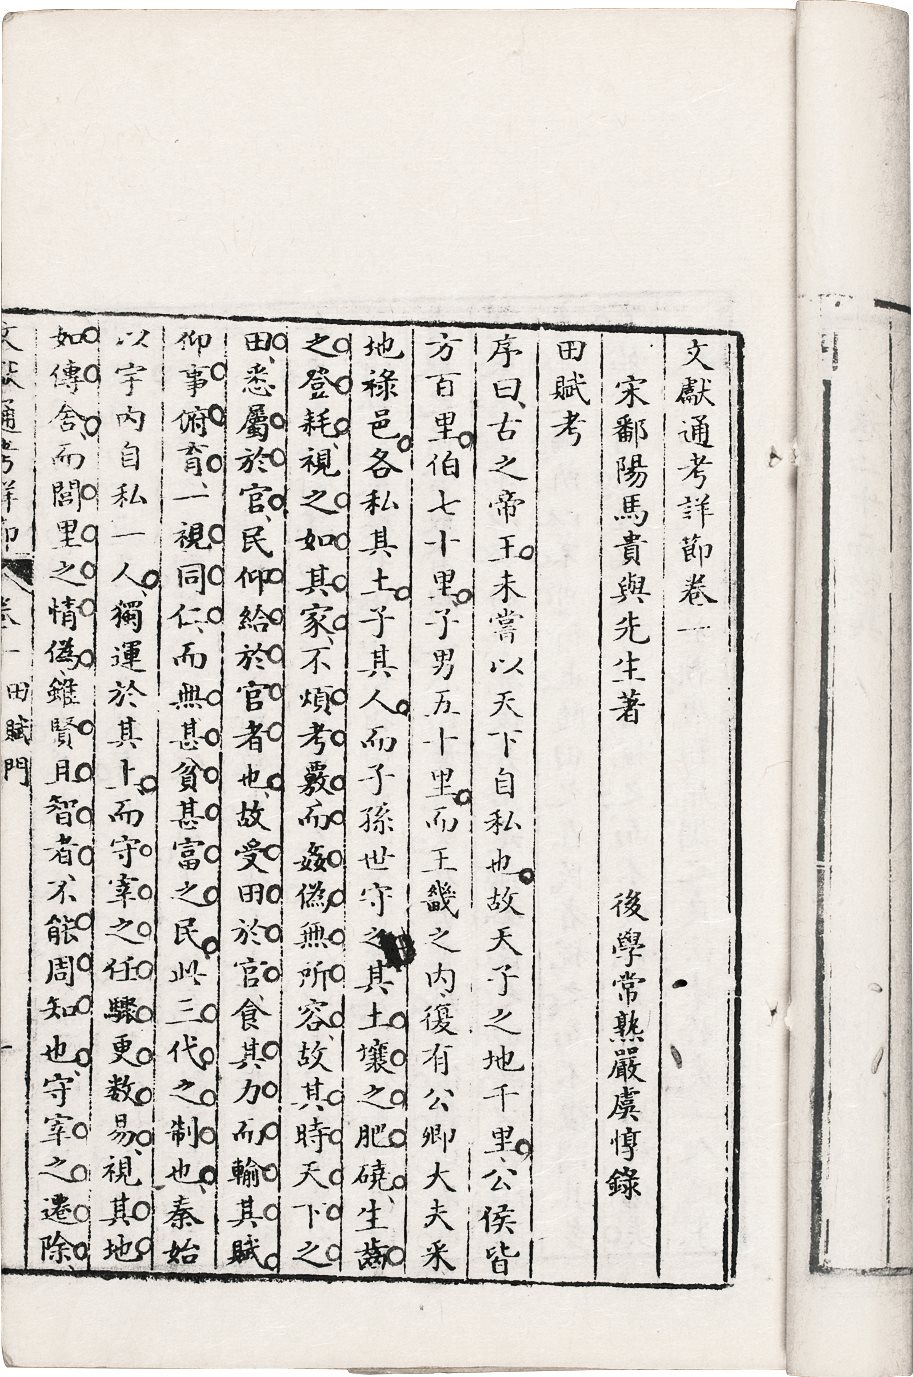 文獻通考詳節卷一
宋鄱陽馬貴與先生著 後學常熟嚴虞惇錄
田賦考
序曰古之帝王未嘗以天下自私也故天子之地千里公侯皆
方百里伯七十里子男五十里而王畿之內復有公卿大夫采
地祿邑各私其土子其人而子孫世守之其土壤之肥磽生齒
之登耗視之如其家不煩考覈而姦偽無所容故其時天下之
田悉屬於官民仰給於官者也故受田於官食其力而輸其賦
仰事俯育一視同仁而無甚貧甚富之民此三代之制也秦始
以宇內自私一人獨運於其上而守宰之任驟更數易視其地
如傳舍而閭里之情偽雖賢且智者不能周知也守宰之遷除
文獻通考詳節 卷一 田賦門 一